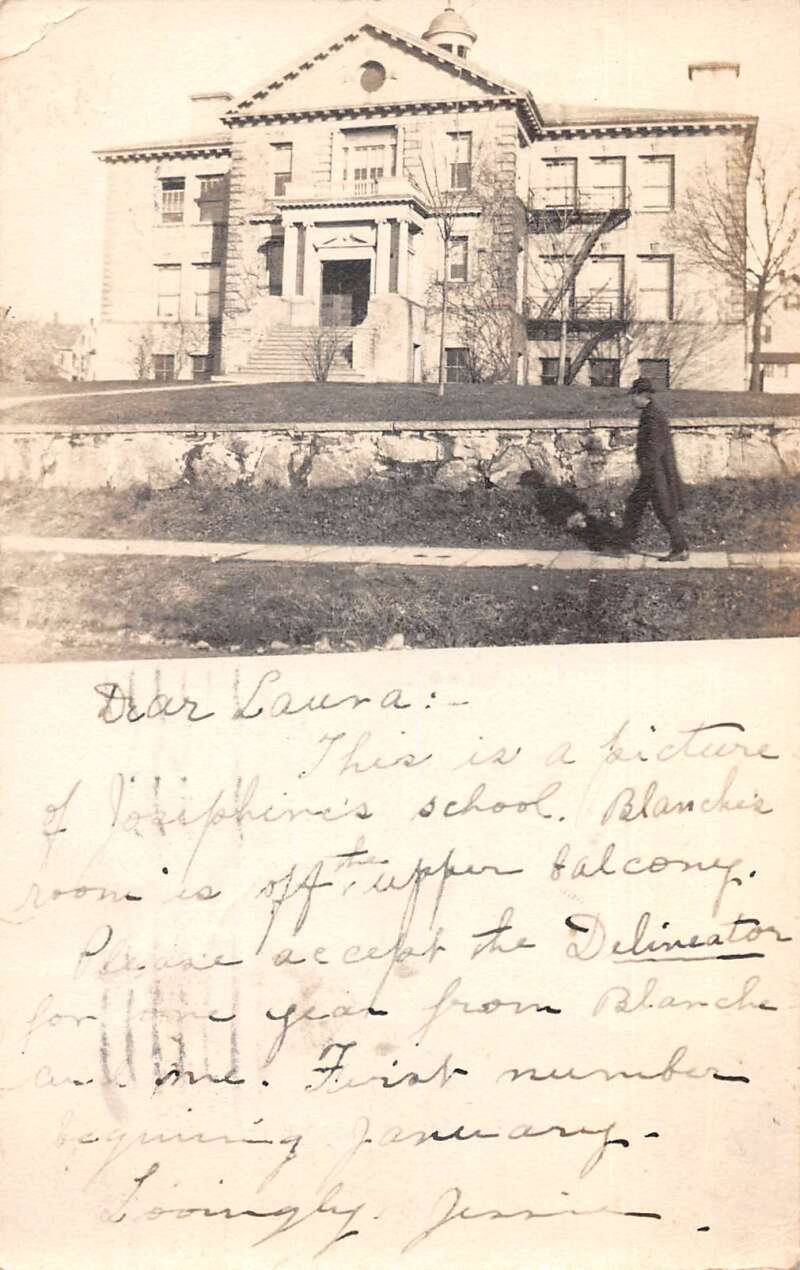 Dear Laura:-
This is a picture
of Josephine's school. Blanche's
room is off the upper balcony.
Please accept the Delineator
for one year from Blanche
and me. First number
beginning January.
Lovingly, Jessie.